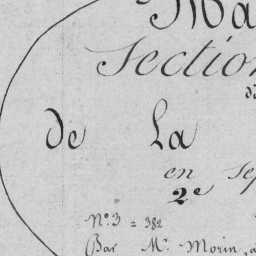 Ma
Section
de La
en sep
2e
No. 3 = 382
Par Mr. Morin, a